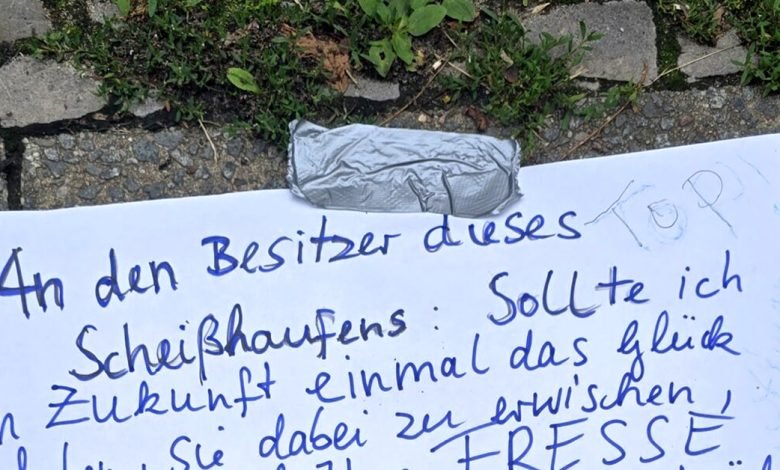 An den Besitzer dieses TOP!
Scheißhaufens: Sollte ich
Zukunft einmal das Glück
Sie dabei zu erwischen,
FRESSE